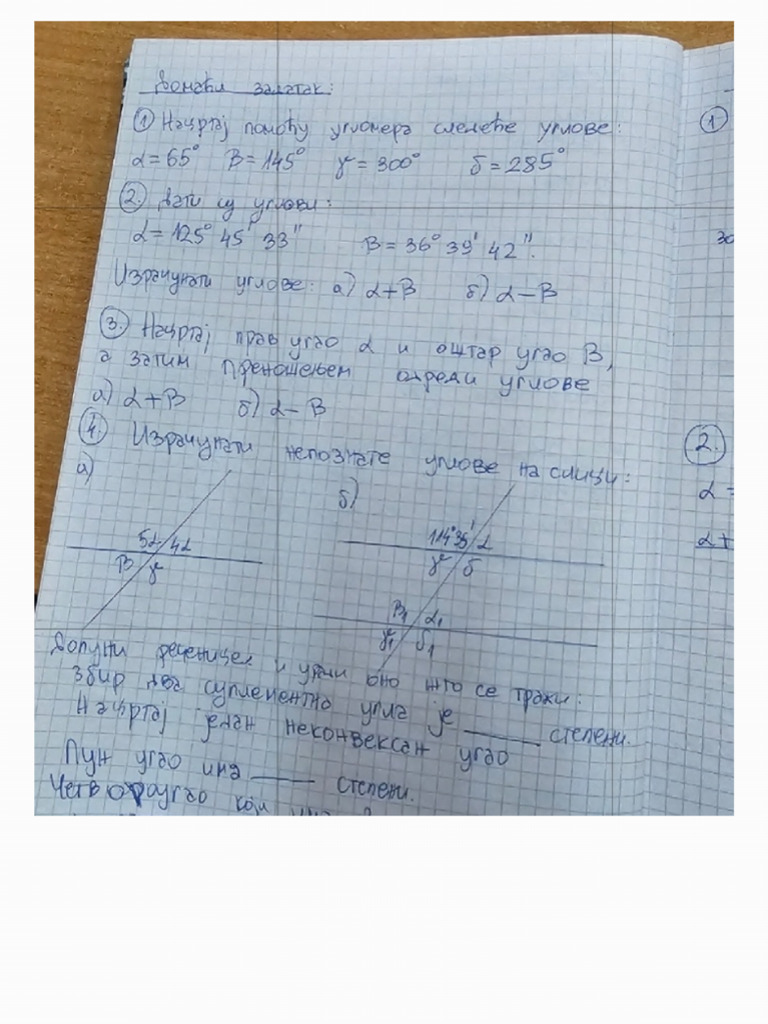 Домаћи задатак:
① Нацртај помоћу угломера следеће углове:
α=65° β=145° γ=300° δ=285°
②. Дати су углови:
α=125° 45' 33" β=36° 39' 42".
Израчунати углове: а) α+β б) α-β
③. Нацртај прав угао α и оштар угао β,
а затим преношењем одреди углове
а) α+β б) α-β
④. Израчунати непознате углове на слици:
а) б)
5α 4α
β γ
114°35' α
γ δ
β₁ α₁
γ₁ δ₁
Допуни реченице и уради оно што се тражи:
Збир два суплементна угла је ____ степени.
Нацртај један неконвексан угао
Пун угао има ____ степени.
Четвороугао који има
①
30
2.
α=
α+